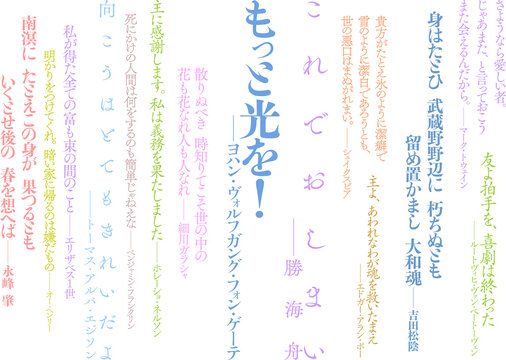 さようなら愛しい者。
じゃあまた、と言っておこう
また会えるんだから。――マーク・トウェイン
友よ拍手を、喜劇は終わった
――ルートヴィヒ・ヴァン・ベートーヴェン
身はたとひ 武蔵野野辺に 朽ちぬとも
留め置かまし 大和魂――吉田松陰
貴方がたとえ氷のように潔癖で
雪のように潔白であろうとも、
世の悪口はまぬがれまい。――シェイクスピア
主よ、あわれなわが魂を救いたまえ
――エドガー・アラン・ポー
これでおしまい
――勝海舟
もっと光を!
――ヨハン・ヴォルフガング・フォン・ゲーテ
散りぬべき 時知りてこそ世の中の
花も花なれ人も人なれ――細川ガラシャ
主に感謝します。私は義務を果たしました――ホレーショ・ネルソン
死にかけの人間は何をするのも簡単じゃねえな――ベンジャミン・フランクリン
向こうはとてもきれいだよ
――トーマス・アルバ・エジソン
私が得た全ての富も束の間のこと――エリザベス1世
明かりをつけてくれ。暗い家に帰るのは嫌だもの――オー・ヘンリー
南溟に たとえこの身が 果つるとも
いくとせ後の 春を想へば――永峰 肇